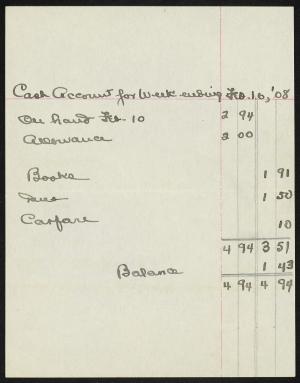 Cash Account for Week ending Feb. 10, '08
On hand Feb. 10 2 94
Allowance 2 00
Books 1 91
Dues 1 50
Carfare 10
4 94 3 51
Balance 1 43
4 94 4 94